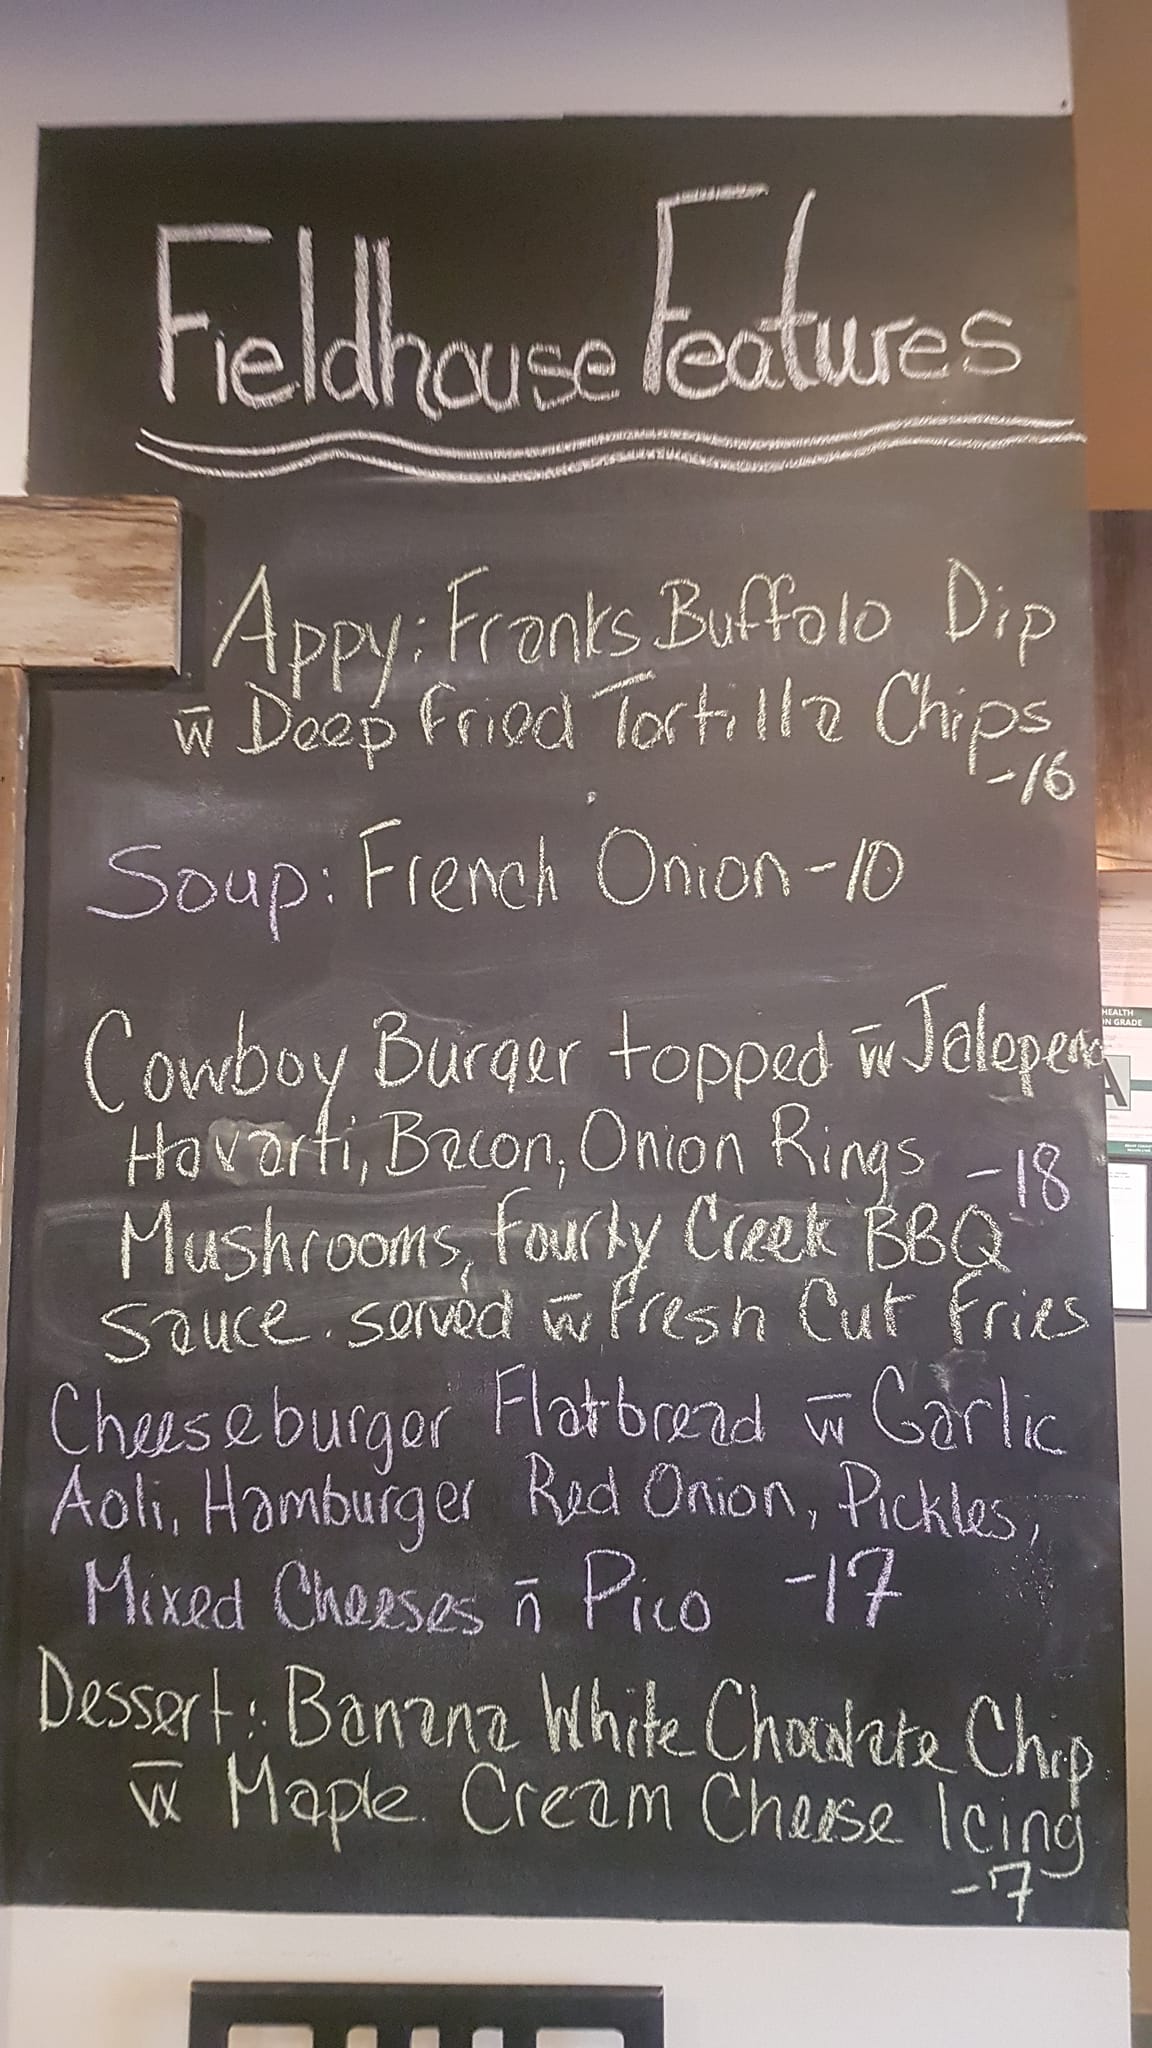 Fieldhouse Features
Appy: Franks Buffalo Dip
w̄ Deep Fried Tortilla Chips
-16
Soup: French Onion - 10
Cowboy Burger topped w̄ Jalopeno
Havarti, Bacon, Onion Rings -18
Mushrooms, Fourty Creek BBQ
Sauce. served w̄ Fresh Cut Fries
Cheeseburger Flatbread w̄ Garlic
Aoli, Hamburger Red Onion, Pickles,
Mixed Cheeses n̄ Pico -17
Dessert: Banana White Chocolate Chip
w̄ Maple Cream Cheese Icing
-7
HEALTH
ON GRADE
A